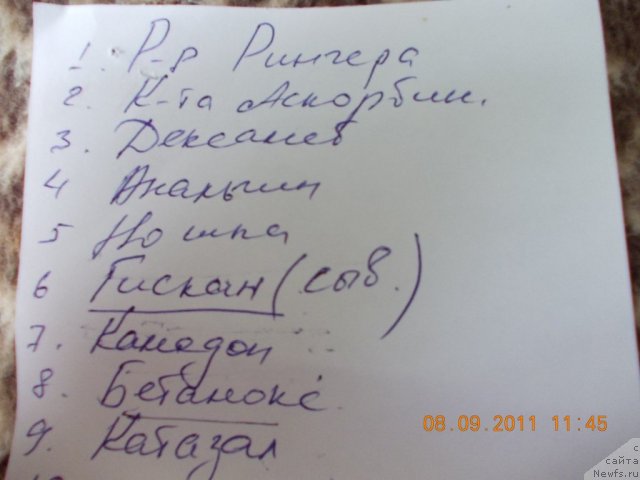 1. Р-р Рингера
2. К-та Аскорбин.
3. Дексамет
4 Анальгин
5 Но шпа
6 Гискан (сыв.)
7. Камедон
8. Бетамокс
9. Катазал
08.09.2011 11:45
с
сайта
Newfs.ru